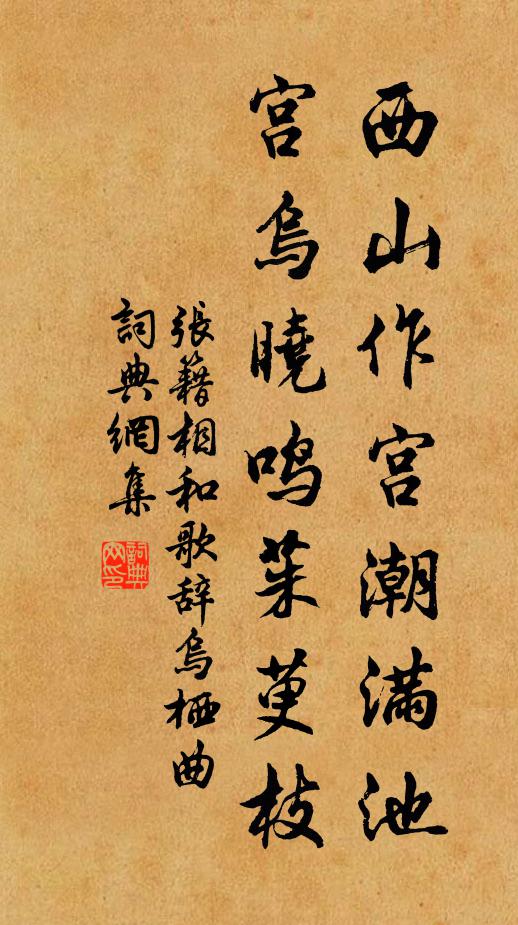 西山作宮潮滿池
宮烏曉鳴茱萸枝
張籍相和歌辞烏栖曲
詞典網集
詞典网印